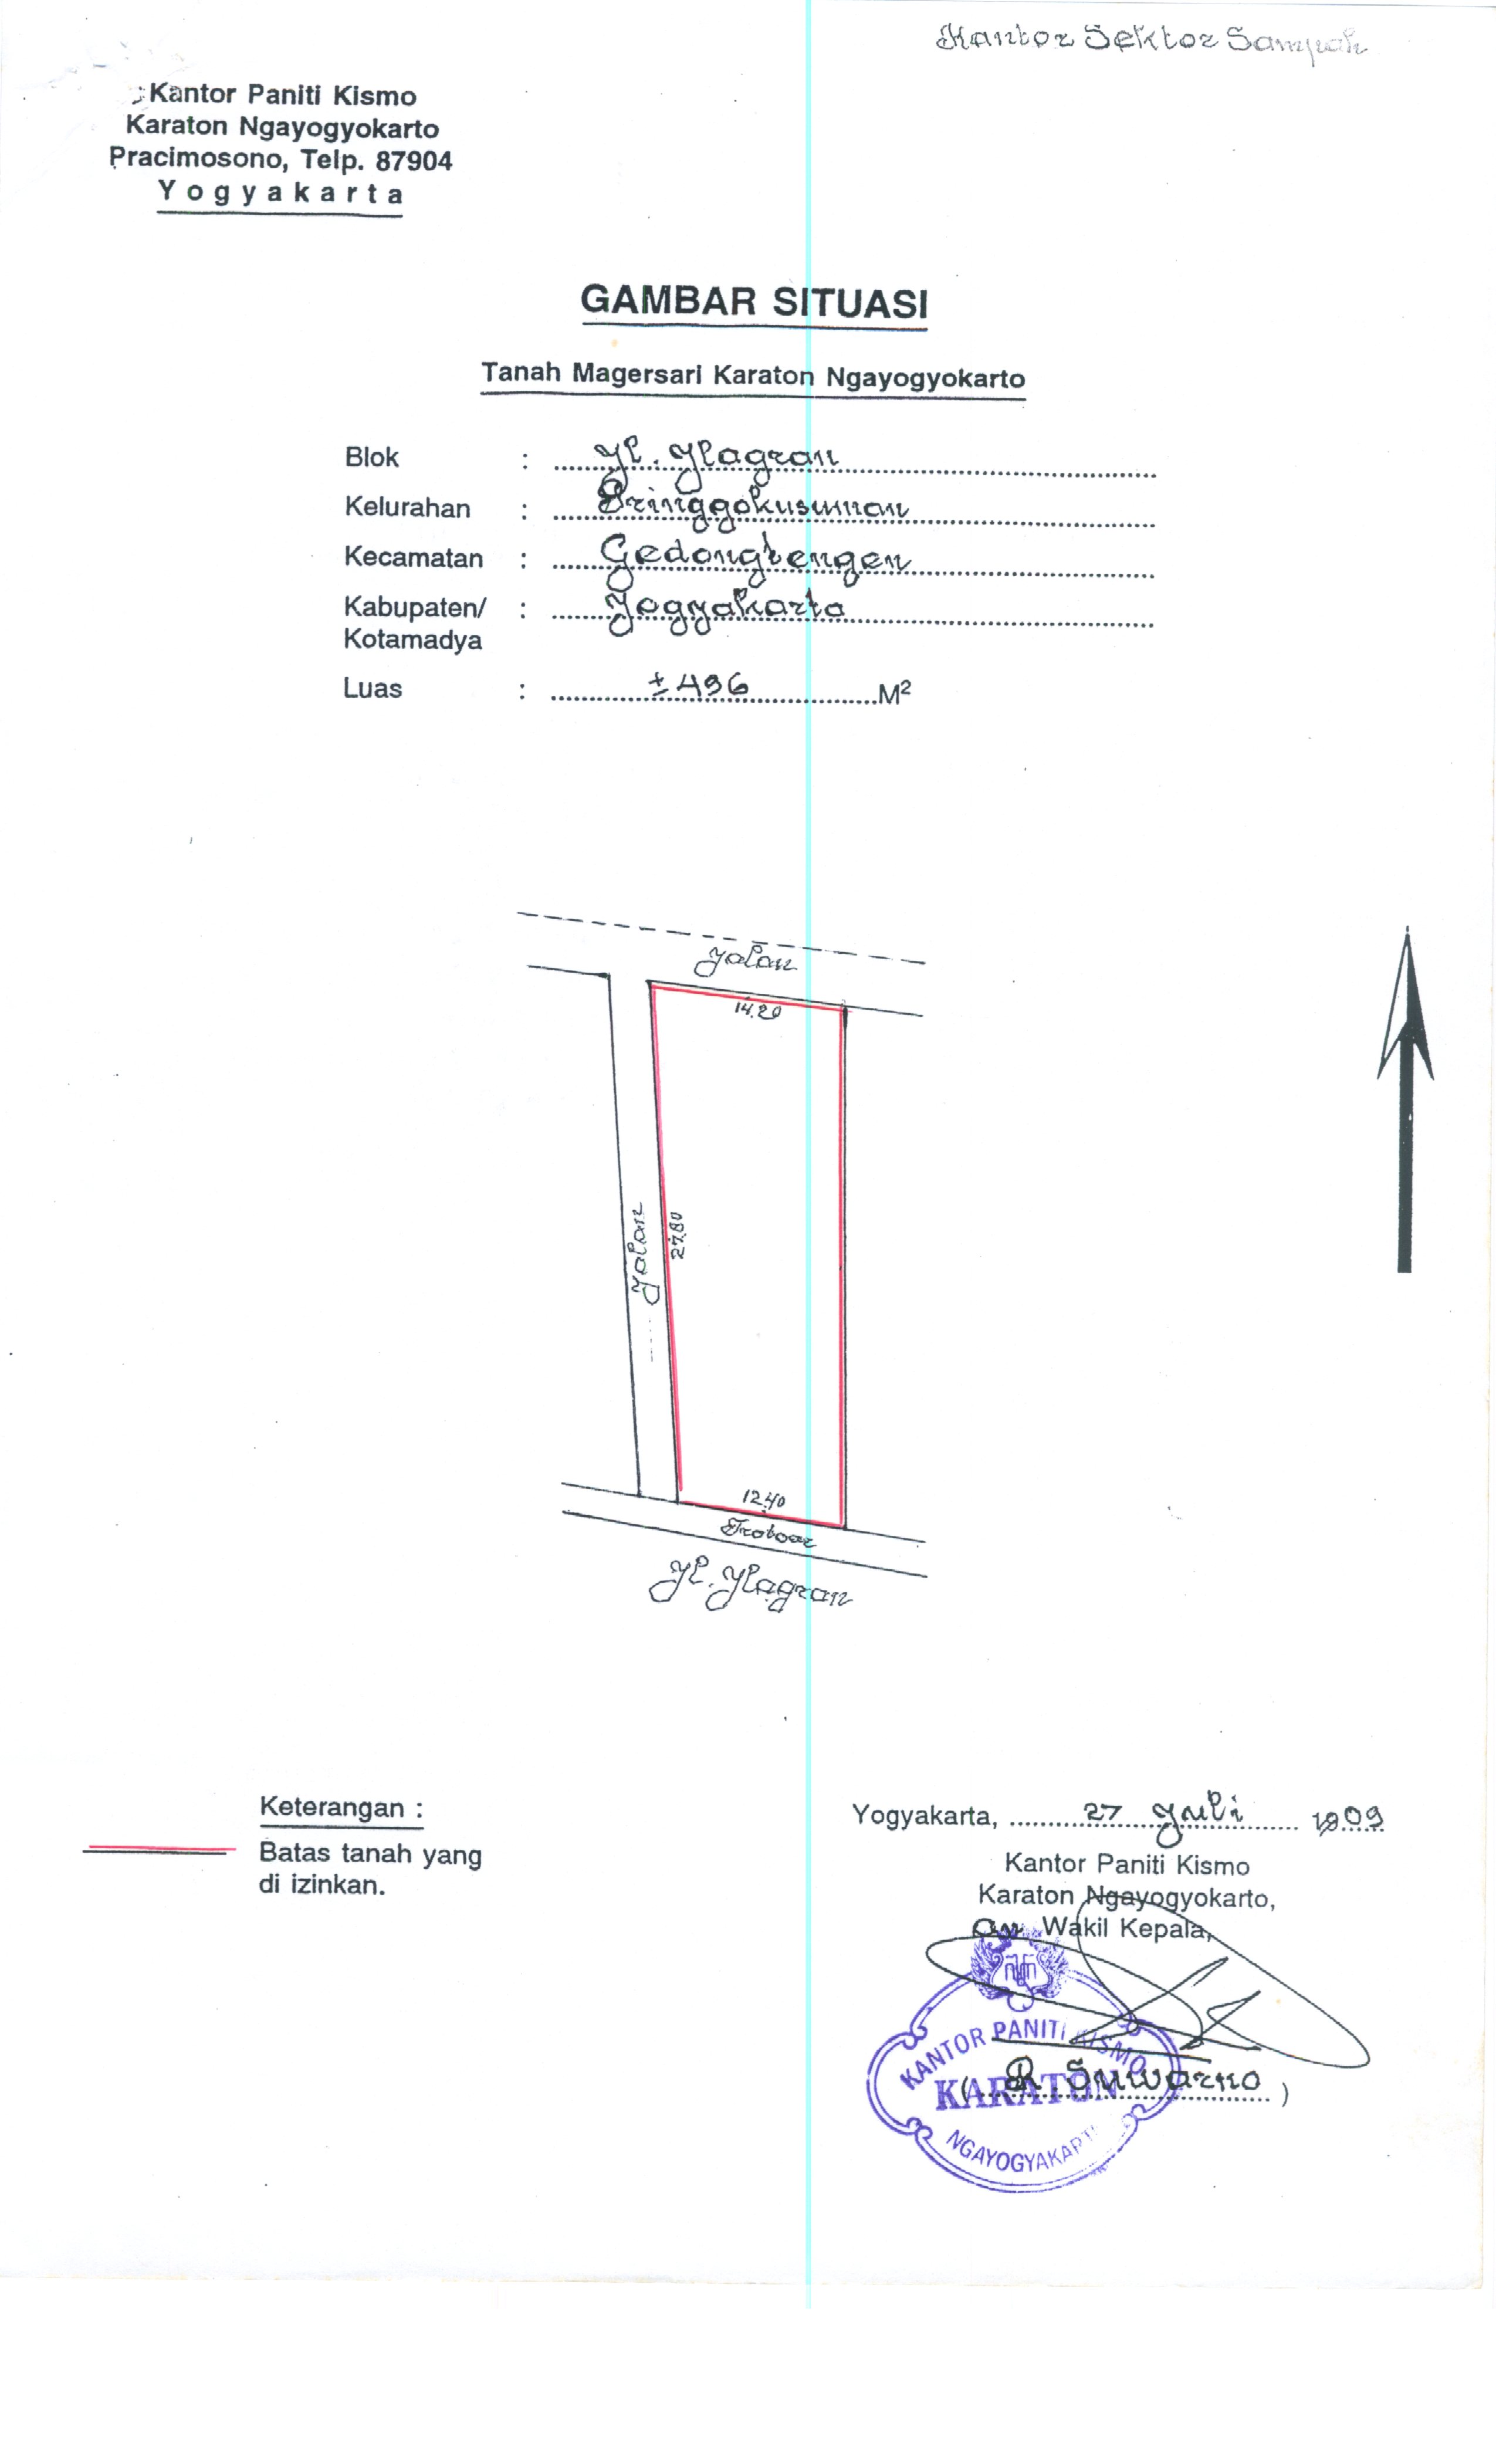 Kantor Sektor Sampah
Kantor Paniti Kismo
Karaton Ngayogyokarto
Pracimosono, Telp. 87904
Yogyakarta
GAMBAR SITUASI
Tanah Magersari Karaton Ngayogyokarto
Blok : Jl. Jlagran
Kelurahan : Pringgokusuman
Kecamatan : Gedongtengen
Kabupaten/ : Yogyakarta
Kotamadya
Luas : ± 496 M²
Jalan
14.20
Jalan
27.80
12.40
Trotoar
Jl. Jlagran
Keterangan :
Batas tanah yang
di izinkan.
Yogyakarta, 27 Juli 09
Kantor Paniti Kismo
Karaton Ngayogyokarto,
An Wakil Kepala,
KANTOR PANITI KISMO
KARATON
NGAYOGYAKART
( R Suwarno )